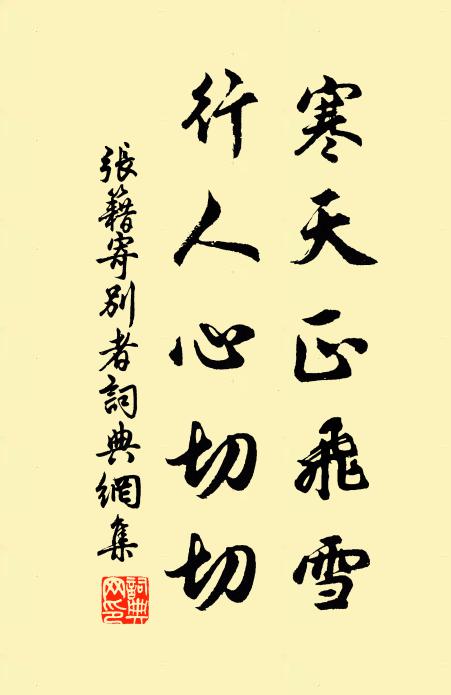 寒天正飛雪
行人心切切
張籍寄別者詞典網集
詞典網印